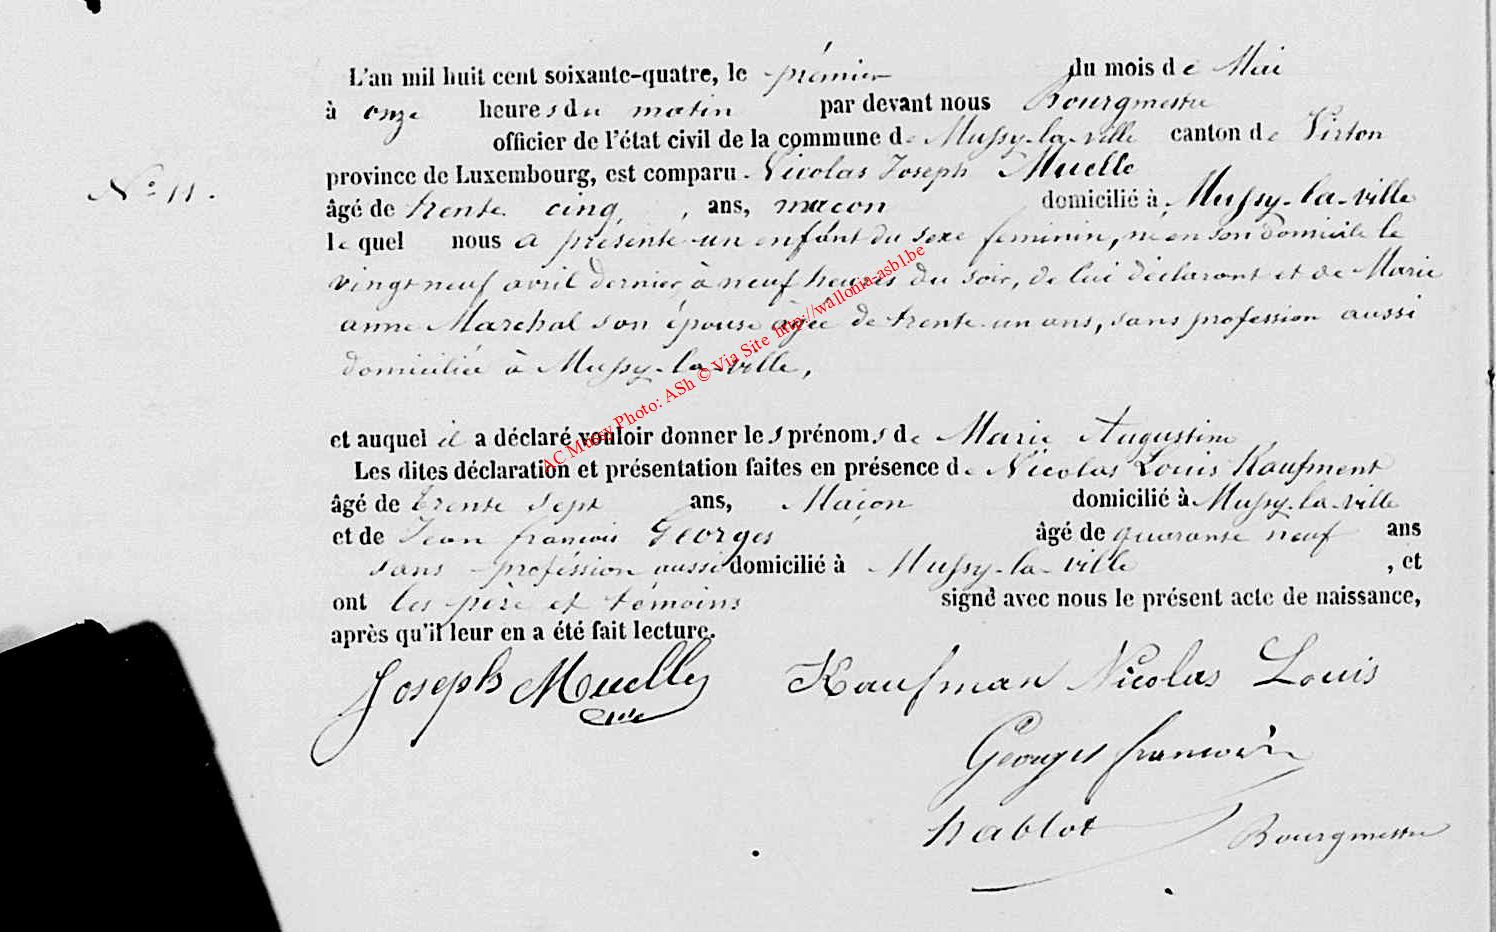 L'an mil huit cent soixante-quatre, le prémier du mois de Mai
à onze heures du matin par devant nous Bourgmestre
officier de l'état civil de la commune de Mussy-la-ville canton de Virton
N° 11.
province de Luxembourg, est comparu Nicolas Joseph Muelle
âgé de trente cinq, ans, macon domicilié à Mussy-la-ville
le quel nous a présenté un enfant du sexe féminin, né en son domicile le
vingt neuf avril dernier, à neuf heures du soir, de lui déclarant et de Marie
anne Marchal son épouse âgée de trente un ans, sans profession aussi
domiciliée à Mussy-la-ville,
et auquel il a déclaré vouloir donner les prénoms de Marie Augustine,
Les dites déclaration et présentation faites en présence de Nicolas Louis Kaufment
âgé de trente sept ans, Maçon domicilié à Mussy-la-ville
et de Jean françois Georges âgé de quarante neuf ans
sans profession aussi domicilié à Mussy-la-ville, et
ont les père et témoins signé avec nous le présent acte de naissance,
après qu'il leur en a été fait lecture.
Joseph Muelle Kaufman Nicolas Louis
Georges francois
hablot Bourgmestre
AC Mussy Photo: ASh © Via Site http://wallonia-asbl.be